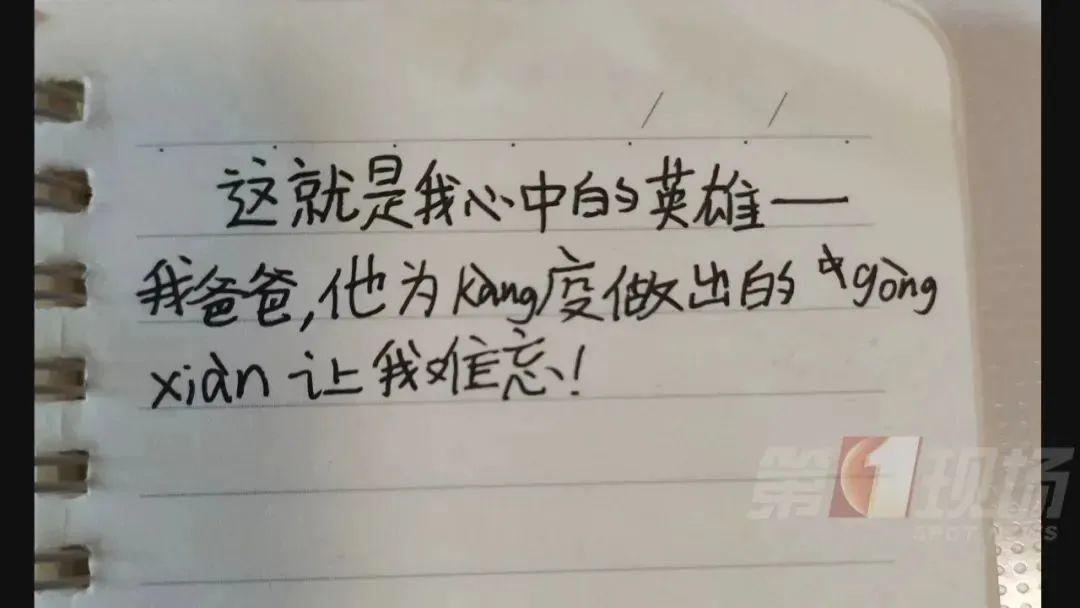 这就是我心中的英雄一
我爸爸,他为kàng度做出的gòng
xiàn让我难忘!
第1现场
SPOT NEWS